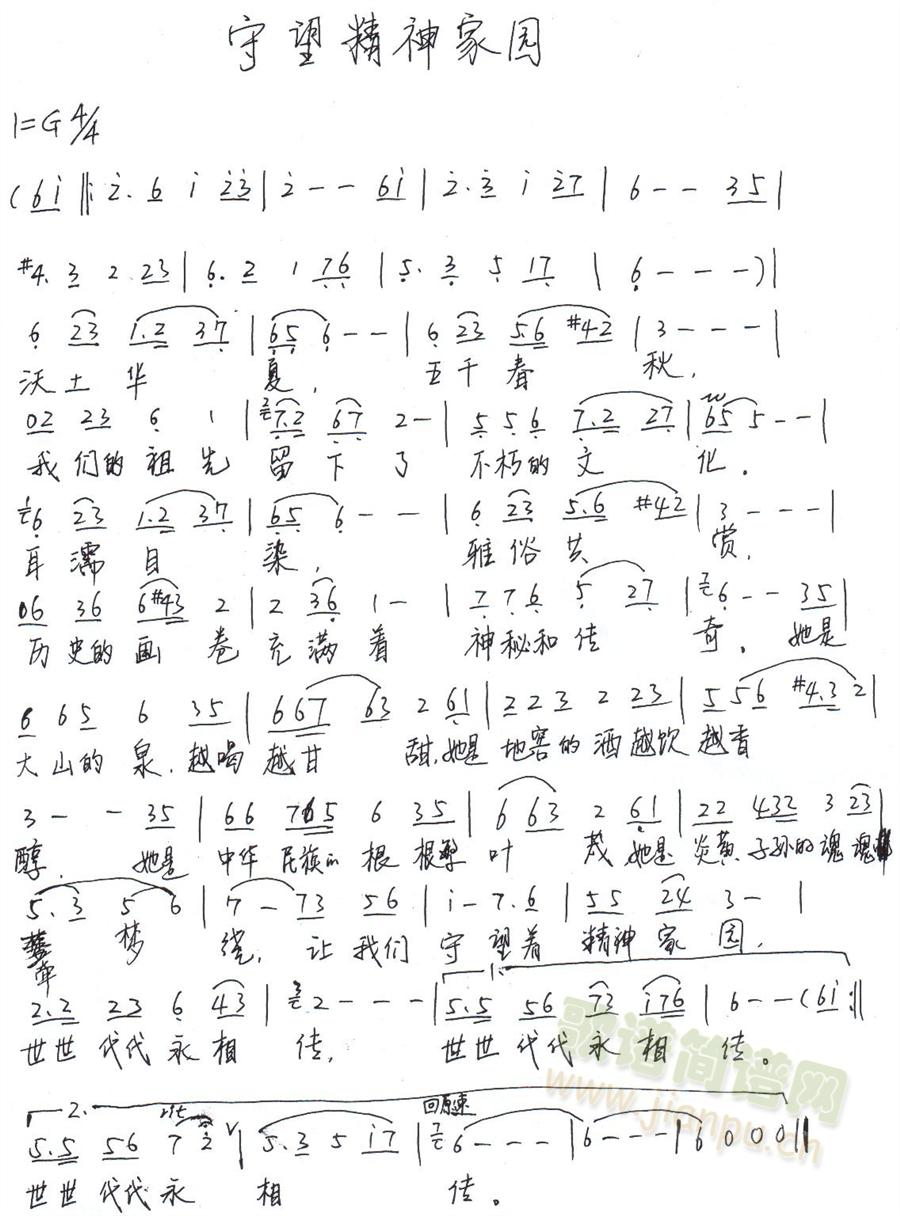 守望精神家园
1=G 4/4
(6i ‖: 2̇. 6 i 2̇3̇ | 2̇ - - 6i | 2̇. 3̇ i 2̇7 | 6 - - 35 |
#4. 3 2 23 | 6̣. 2 1 7̣6̣ | 5̣. 3̣ 5̣ 17̣ | 6̣ - - - ) |
6̣ 23 1.2 37̣ | 6̣5̣ 6̣ - - | 6̣ 23 56 #42 | 3 - - - |
沃土华 夏, 五千春 秋,
02 23 6̣ 1 | 7̣.2 6̣7̣ 2 - | 5̣ 5̣ 6̣ 7̣.2 27̣ | 6̣5̣ 5̣ - - |
我们的祖先 留下了 不朽的文 化。
6̣ 23 1.2 37̣ | 6̣5̣ 6̣ - - | 6̣ 23 5.6 #42 | 3 - - - |
耳濡目 染, 雅俗共 赏,
06 36 6#43 2 | 2 36̣ 1 - | 7̣ 7̣ 6̣ 5̣ 27̣ | 6̣ - - 35 |
历史的画卷充满着 神秘和传 奇。她是
6 65 6 35 | 667 63 2 6̣1 | 2 2 3 2 23 | 5 56 #4.3 2 |
大山的泉,越喝越甘 甜,她是地窖的酒越饮越香
3 - - 35 | 66 765 6 35 | 6 63 2 6̣1 | 22 432 3 23 |
醇. 她是 中华民族的根根 叶 茂她是炎黄子孙的魂魂
5.3 5 6 | 7 - 73 56 | i - 7.6 | 55 24 3 - |
牵 梦 绕, 让我们守望着 精神家园,
1.
2.2 23 6̣ 43 | 2 - - - | 5.5 56 73 i76 | 6 - - (6i :‖
世世代代永相 传, 世世代代永相 传。
歌谱简谱网
www.jianpu.cn
2. rit 回原速
5.5 56 7 2̇ ∨ | 5.3 5 i7 | 6 - - - | 6 - - - | 6 0 0 0 ‖
世世代代永 相 传。